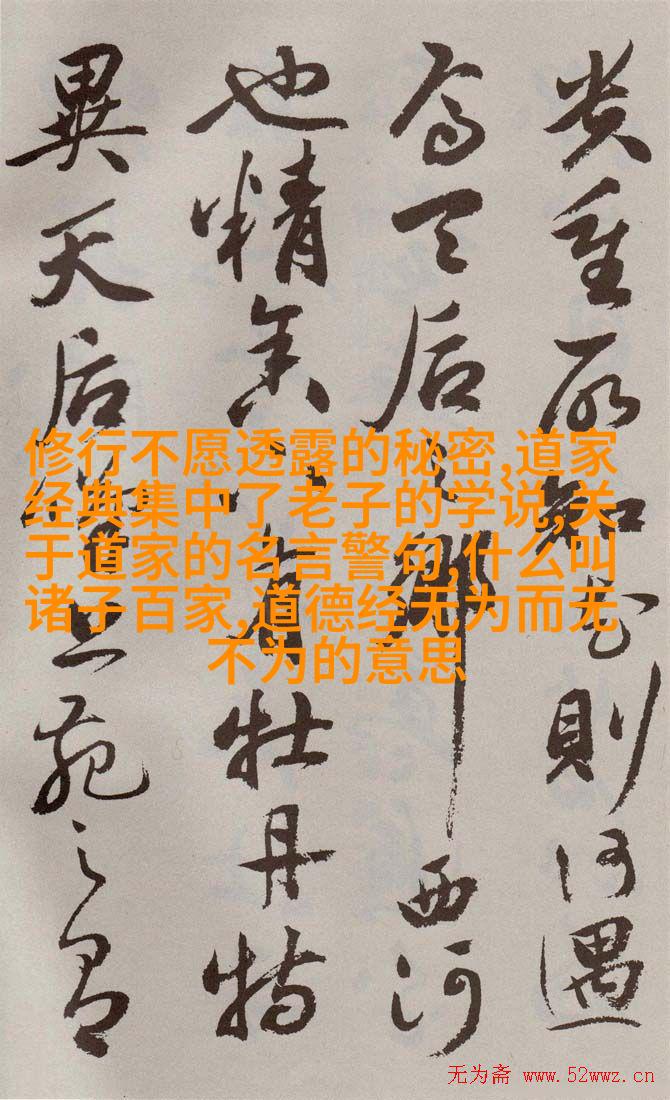 貴重所知花則何遇
焉天后之鄉西河
也精舍下有牡丹特
異天后上苑之有
修行不愿透露的秘密,道家
经典集中了老子的学说,关
于道家的名言警句,什么叫
诸子百家,道德经无为而无
不为的意思
无为斋 www.52wwz.cn